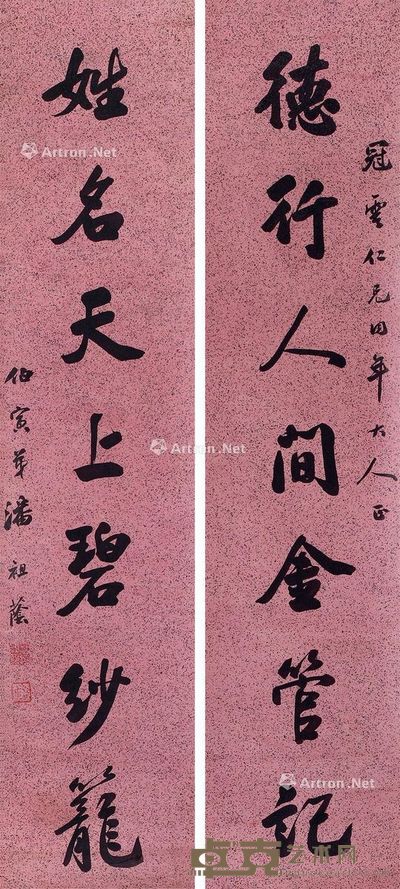 冠雲仁兄同年大人正
德行人間金管記
姓名天上碧紗籠
伯寅弟潘祖蔭
Artron.Net
Artron.Net
Artron.Net
Artron.Net
艺术网